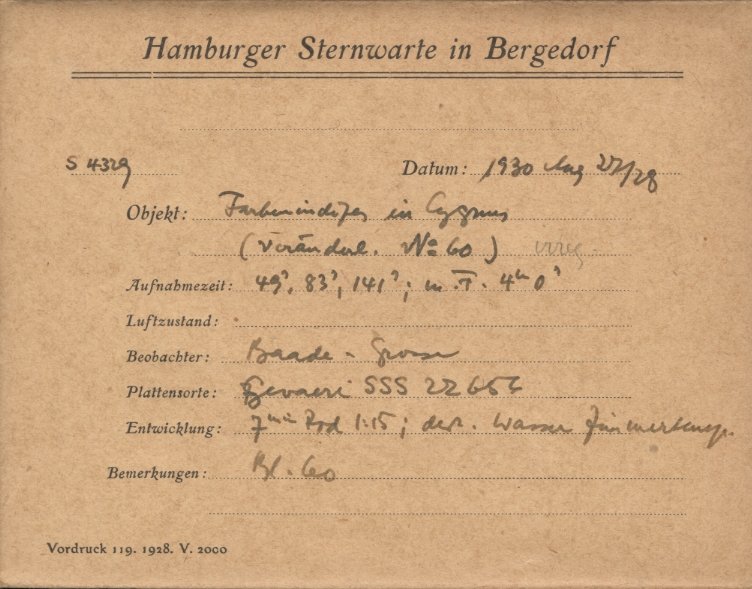 Hamburger Sternwarte in Bergedorf
S 4329
Datum: 1930 Aug 27/28
Objekt: Farbenindizes in Cygnus
(Veränderl. No 60)
Aufnahmezeit: 49s, 83s, 141s; m. T. 4h 0s
Luftzustand:
Beobachter: Baade - Grosse
Plattensorte: Gevaert SSS 22656
Entwicklung: 7min Rod 1:15; dest. Wasser Zimmertemp.
Bemerkungen: Bl. 60
Vordruck 119. 1928. V. 2000